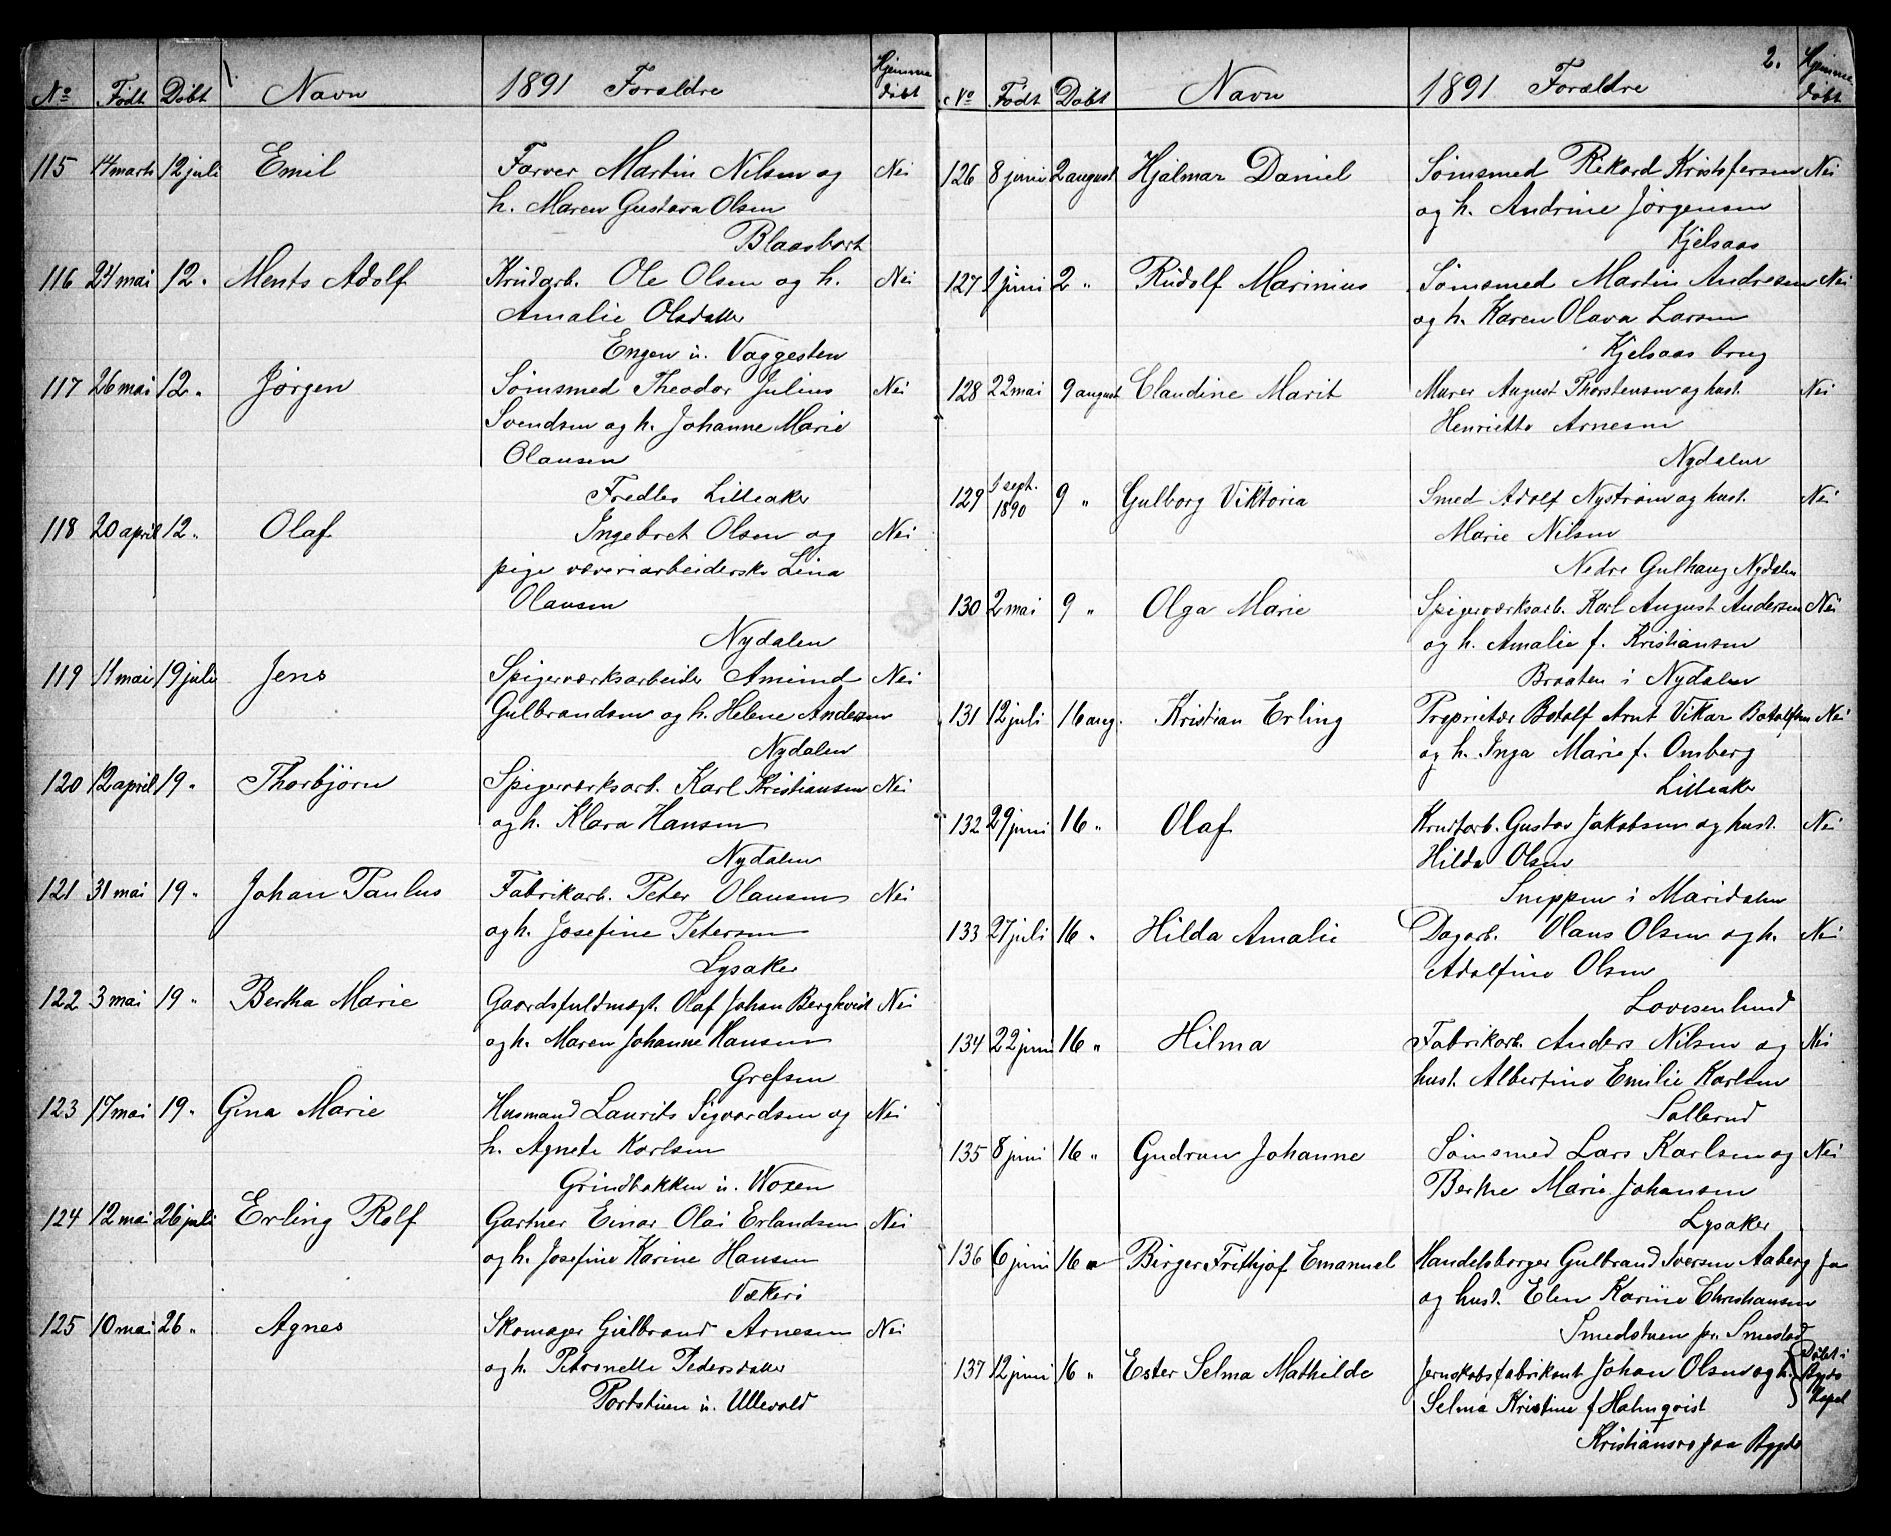 1.
No Født Døbt Navn 1891 Forældre Hjemme døbt
115 14 marts 12 juli Emil Farver Martin Nilsen og Nei
h. Maren Gustava Olsen
Blaasbort
116 24 mai 12 " Ments Adolf Krudarb. Ole Olsen og h. Nei
Amalie Olsdatter
Engen u. Vaggesten
117 26 mai 12 " Jørgen Sømsmed Theodor Julius Nei
Svendsen og h. Johanne Marie
Olausen
Fredbo Lilleaker
118 20 april 12 " Olaf Ingebret Olsen og Nei
pige væveriarbeiderske Lina
Olausen
Nydalen
119 11 mai 19 juli Jens Spigerværksarbeider Amund Nei
Gulbrandsen og h. Helene Andersen
Nydalen
120 12 april 19 " Thorbjørn Spigerværksarb. Karl Kristiansen Nei
og h. Klara Hansen
Nydalen
121 31 mai 19 " Johan Paulus Fabrikarb. Peter Olausen Nei
og h. Josefine Petersen
Lysaker
122 3 mai 19 " Bertha Marie Gaardsfuldmægt. Olaf Johan Bergkvist Nei
og h. Maren Johanne Hansen
Grefsen
123 17 mai 19 " Gina Marie Husmand Laurits Sigvardsen og Nei
h. Agnete Karlsen
Grindbakken u. Woxen
124 12 mai 26 juli Erling Rolf Gartner Einar Olai Erlandsen Nei
og h. Josefine Karine Hansen
Vækerø
125 10 mai 26 " Agnes Skomager Gulbrand Arnesen Nei
og h. Petronelle Pedersdatter
Portstuen u. Ullevold
2.
No Født Døbt Navn 1891 Forældre Hjemme døbt
126 8 juni 2 august Hjalmar Daniel Sømsmed Rikard Kristofersen Nei
og h. Andrine Jørgensen
Kjelsaas
127 1 juni 2 " Rudolf Marinius Sømsmed Martin Andresen Nei
og h. Karen Olava Larsen
Kjelsaas brug
128 22 mai 9 august Claudine Marit Murer August Thorstensen og hust. Nei
Henriette Arnesen
Nydalen
129 9 sept. 1890 9 " Gulborg Viktoria Smed Adolf Nystrøm og hust. Nei
Marie Nilsen
Nedre Gulhaug Nydalen
130 2 mai 9 " Olga Marie Spigerværksarb. Karl August Andersen Nei
og h. Amalie f. Kristiansen
Braaten i Nydalen
131 12 juli 16 aug. Kristian Erling Proprietær Botolf Arnt Vikar Botolfsen Nei
og h. Inga Marie f. Omberg
Lilleaker
132 29 juni 16 " Olaf Krudtarb. Gustav Jakobsen og hust. Nei
Hilda Olsen
Snippen i Maridalen
133 27 juli 16 " Hilda Amalie Dagarb. Olaus Olsen og h. Nei
Adolfine Olsen
Lovisenlund
134 22 juni 16 " Hilma Fabrikarb. Anders Nilsen og Nei
hust. Albertine Emilie Karlsen
Sollerud
135 8 juni 16 " Gudrun Johanne Sømsmed Lars Karlsen og Nei
Berthe Marie Johansen
Lysaker
136 6 juni 16 " Birger Frithjof Emanuel Handelsborger Gulbrand Iversen Aaberg Ja
og hust. Elen Karine Christiansen
Smedstuen pr. Smestad
137 12 juni 16 " Ester Selma Mathilde Jernskabsfabrikant Johan Olsen og h. Døbt i
Selma Kristine f Holmqvist Bygdø Kapel
Kristiansro paa Bygdø